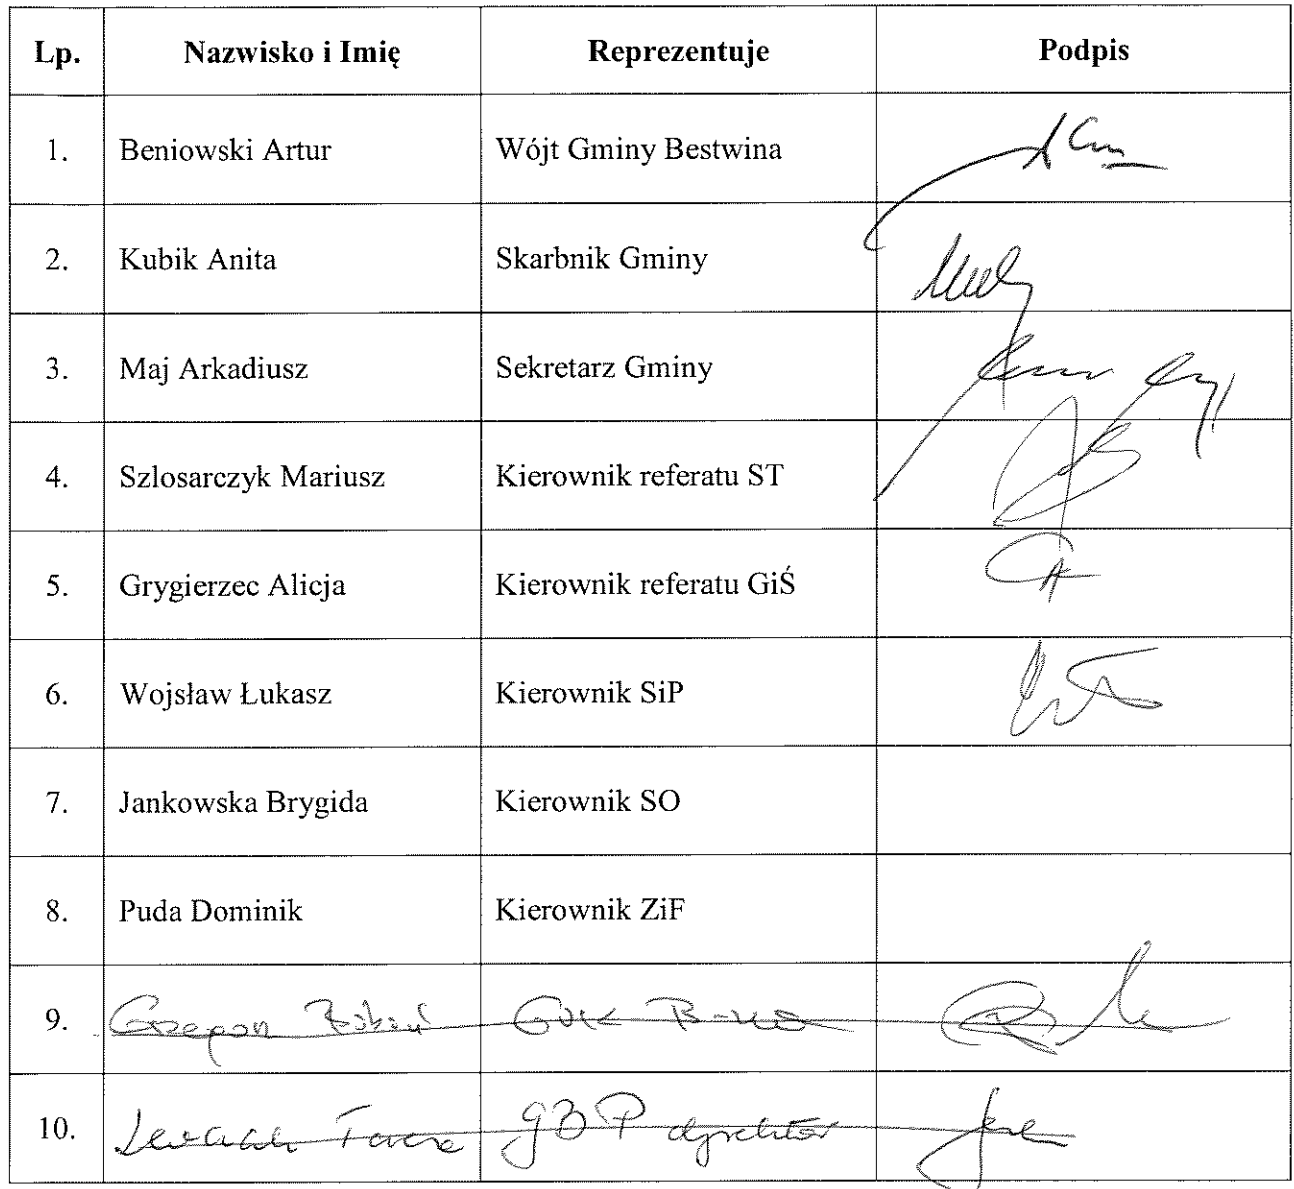 Lp. Nazwisko i Imię Reprezentuje Podpis
1. Beniowski Artur Wójt Gminy Bestwina
2. Kubik Anita Skarbnik Gminy
3. Maj Arkadiusz Sekretarz Gminy
4. Szlosarczyk Mariusz Kierownik referatu ST
5. Grygierzec Alicja Kierownik referatu GiŚ
6. Wojsław Łukasz Kierownik SiP
7. Jankowska Brygida Kierownik SO
8. Puda Dominik Kierownik ZiF
9.
10. GBP dyrektor